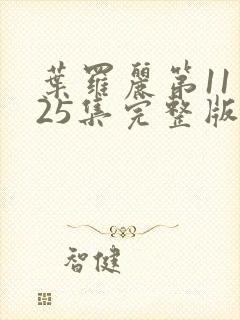 葉羅麗第11
25集完整版
智健